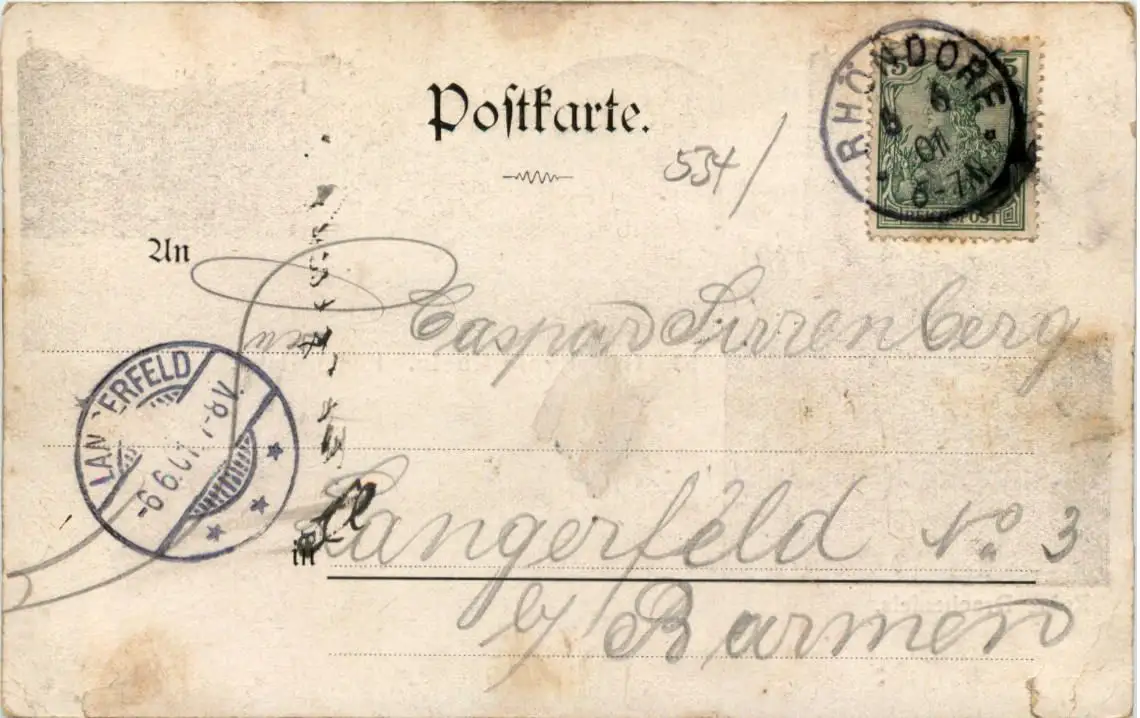 Postkarte.
534/
5 5
REICHSPOST
RHÖNDORF
6 01
6-7N.
An
Caspar Sirrenberg
LANGERFELD
-6 6.01 7-8V.
in Langerfeld No. 3
b/ Barmen